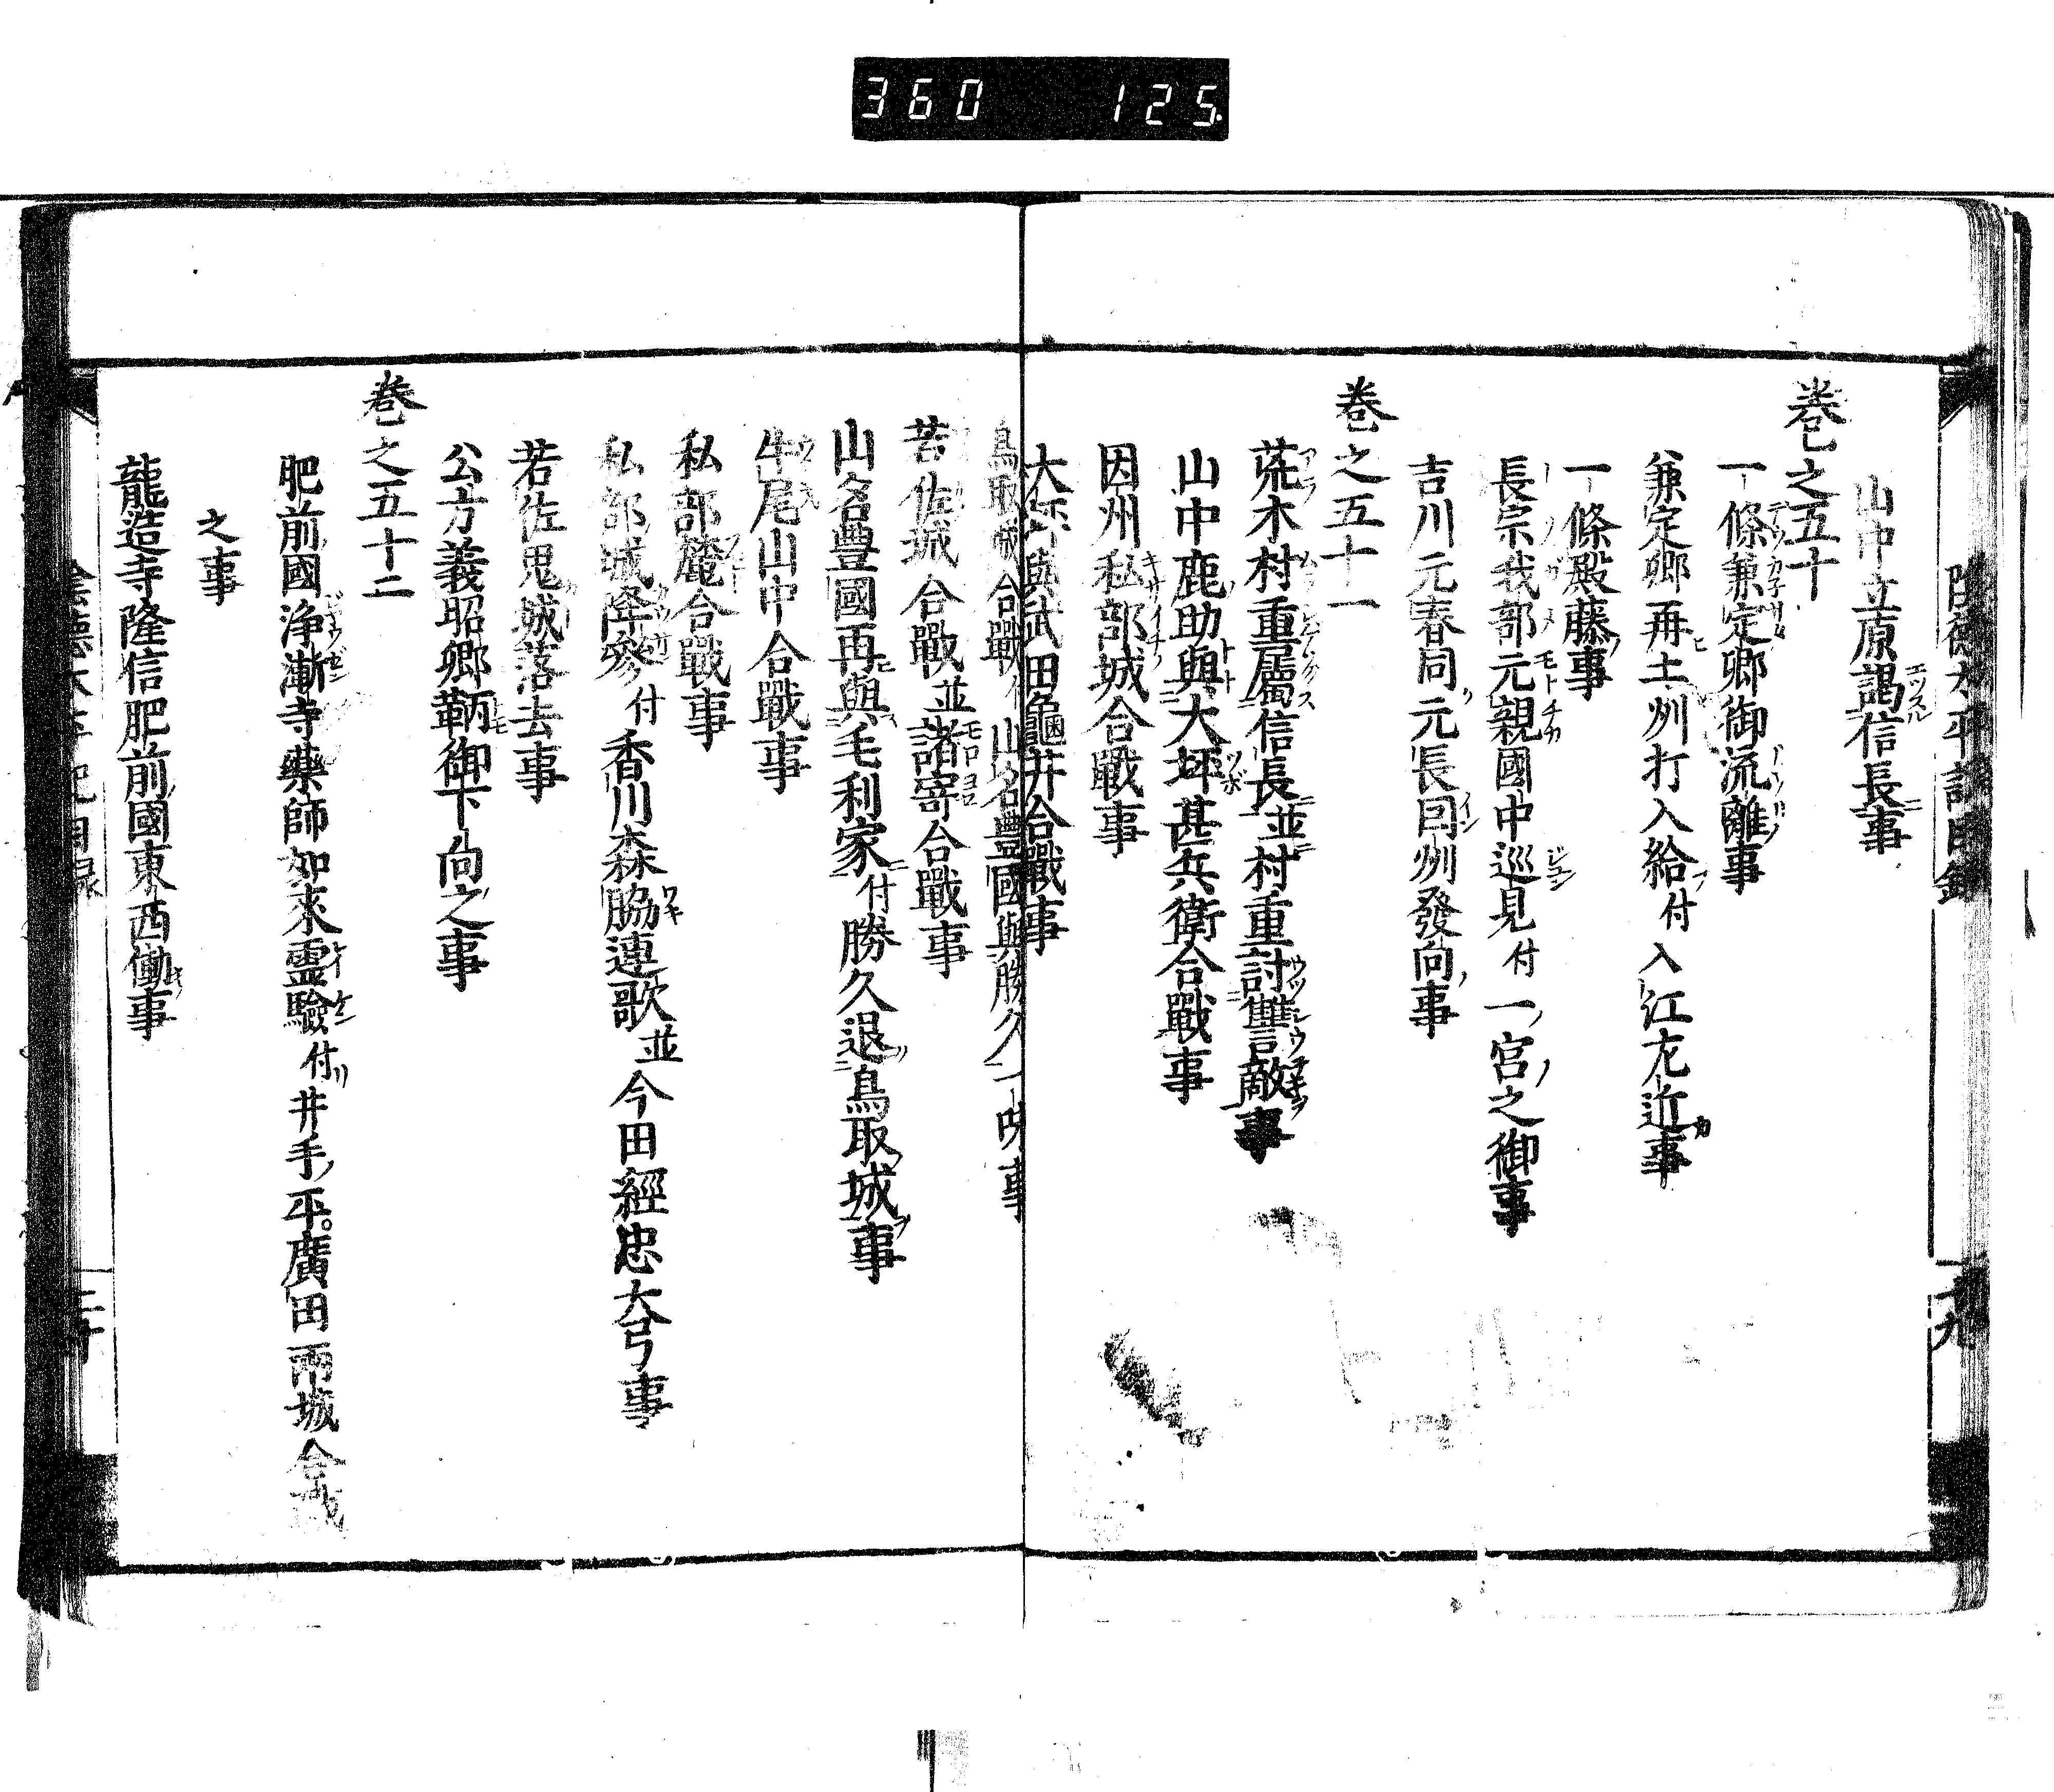 360 125
山中立原謁信長事
卷之五十
一條兼定卿御流離事
兼定卿再土州打入給付入江左近事
一條殿藤事
長宗我部元親國中巡見付一宮之御事
吉川元春同元長因州發向事
卷之五十一
荒木村重屬信長並村重討讐敵事
山中鹿助與大坪甚兵衛合戰事
因州私部城合戰事
大坪與武田龜井合戰事
鳥取城合戰山名豐國與勝久一味事
若佐城合戰並諸寄合戰事
山名豐國再與毛利家付勝久退鳥取城事
牛尾山中合戰事
私部麓合戰事
私部城降參付香川森脇連歌並今田經忠大弓事
若佐鬼城落去事
公方義昭卿鞆御下向之事
卷之五十二
肥前國浄漸寺藥師如來靈驗付井手平廣田兩城合戰
之事
龍造寺隆信肥前國東西働事